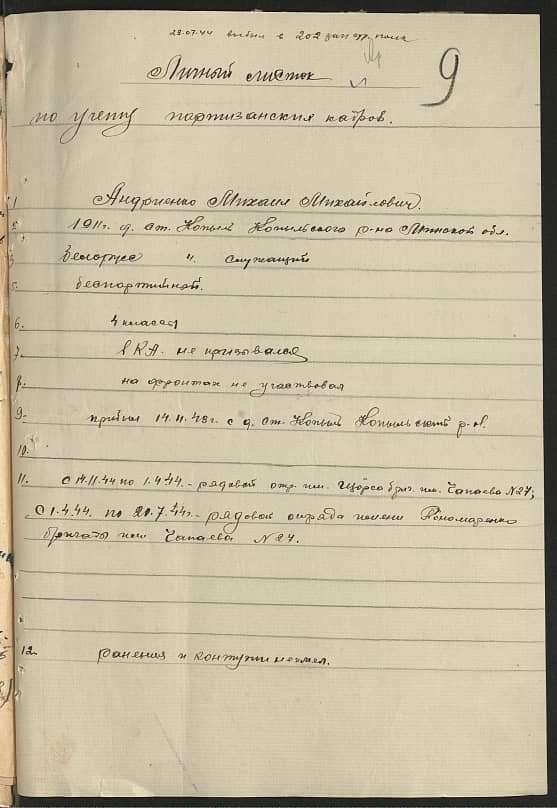 29.07.44 выбыл в 202 зап. стр. полк
9
Личный листок
по учету партизанских кадров.
1 Андриенко Михаил Михайлович.
2. 1911г. д. ст. Копыл Копыльского р-на Минской обл.
3 Белорусс 4. служащий
5. беспартийной.
6. 4 класса
7. в КА. не призывался
8. на фронтах не участвовал
9. прибыл 14.11.43г. с д. ст. Копыл Копыльский р-н.
10.
11. с 14.11.44 по 1.4.44. - рядовой отр. им. Щорса бриг. им. Чапаева №27;
с 1.4.44. по 20.7.44г. - рядовой отряда имени Пономаренко
бригады им Чапаева №27.
12. ранения и контузии не имел.